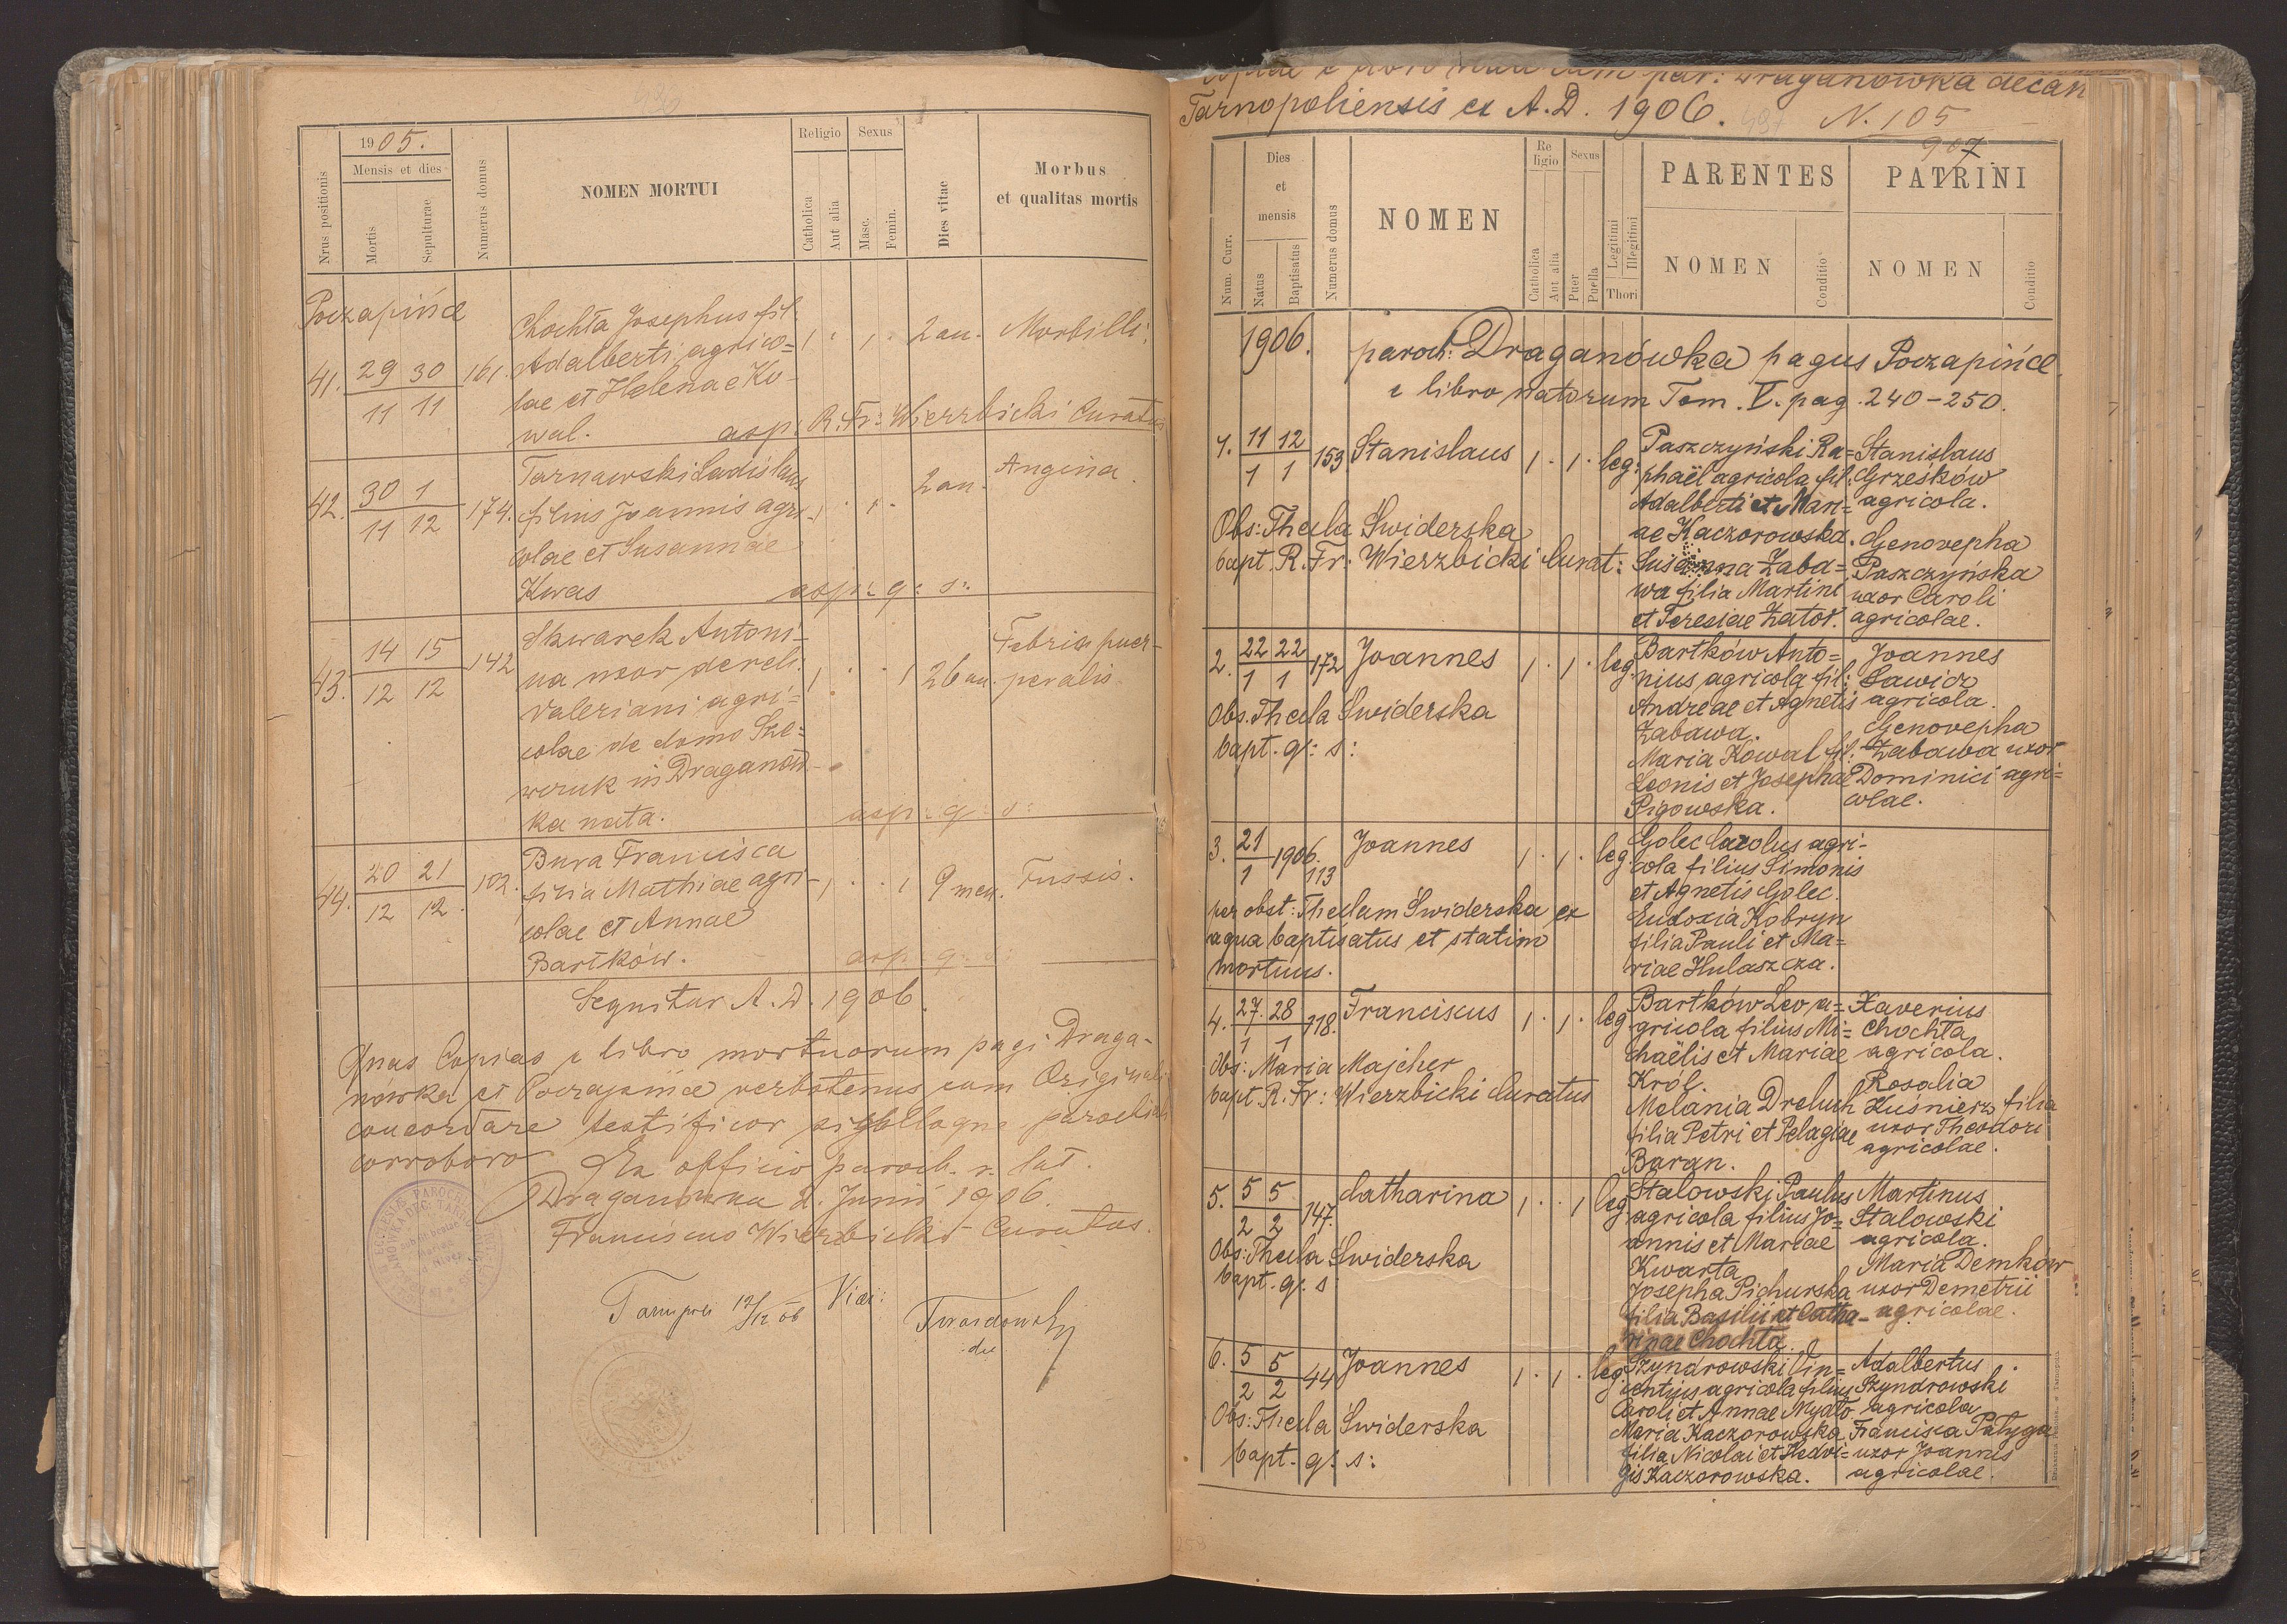 1905.
Mensis et dies
Nrus positionis
Mortis
Sepulturae
Numerus domus
NOMEN MORTUI
Religio
Sexus
Catholica
Aut alia
Masc.
Femin.
Dies vitae
Morbus
et qualitas mortis
Poczapińce
41. 29/11 30/11 161. Chochta Josephus fil.
Adalberti agrico=
lae et Helenae Ko-
wal.
1 . 1 . 2 an. Morbilli.
asp: R. Fr: Wierzbicki Curatus
42. 30/11 1/12 174. Tarnawski Ladislaus
filius Joannis agri-
colae et Susannae
Kwas
1 . 1 . 2 an. Angina.
asp: q: s:
43. 14/12 15/12 142 Skwarek Antoni-
na uxor derel.
Valeriani agri=
colae de domo Sze=
weruk in Draganów-
ka nata.
1 . . 1 26 an. Febris puer-
peralis.
asp: q: s:
44. 20/12 21/12 102. Bura Francisca
filia Mathiae agri-
colae et Annae
Bartków.
1 . . 1 9 men. Tussis.
asp: q: s:
Sequitur A. D. 1906.
Quas Copias e libro mortuorum pagi Draga-
nówka et Poczapińce verbotenus cum Originali
concordare testificor sigilloque parochiali
corroboro
Ex officio paroch. r. lat.
Draganówka 2. Junii 1906.
Franciscus Wierzbicki Curatus.
Vidi:
Twardowski
Tarnopoliensis ex A. D. 1906. N. 105
907
Num. Curr.
Dies
et
mensis
Natus
Baptisatus
Numerus domus
NOMEN
Religio
Sexus
Catholica
Aut alia
Puer
Puella
Legitimi
Illegitimi
Thori
PARENTES
NOMEN
Conditio
PATRINI
NOMEN
Conditio
1906. paroch: Draganówka pagus Poczapińce.
e libro natorum Tom. V. pag. 240-250.
1. 11/1 12/1 153 Stanislaus 1 . 1 . leg:
Obs: Thecla Swiderska
bapt. R. Fr: Wierzbicki Curat:
Paszczyński Ra=
phaël agricola fil:
Adalberti et Mari=
ae Kaczorowska.
Susanna Zaba=
wa filia Martini
et Teresiae Zator.
Stanislaus
Grześków
agricola.
Genovepha
Paszczyńska
uxor Caroli
agricolae.
2. 22/1 22/1 172 Joannes 1 . 1 . leg.
Obs. Thecla Swiderska
bapt. q: s:
Bartków Anto=
nius agricola fil:
Andreae et Agnetis
Zabawa.
Maria Kowal fil.
Leonis et Josephae
Pigowska.
Joannes
Sawicz
agricola.
Genovepha
Zabawa uxor
Dominici agri=
colae.
3. 21/1 1906. 113 Joannes 1 . 1 . leg.
per obst: Theclam Swiderska ex
aqua baptisatus et statim
mortuus.
Golec Carolus agri-
cola filius Simonis
et Agnetis Golec.
Eudoxia Kobryn
filia Pauli et Ma=
riae Hulaszcza.
4. 27/1 28/1 118. Franciscus 1 . 1 . leg.
Obs: Maria Majcher
bapt. R. Fr: Wierzbicki Curatus
Bartków Leo a=
gricola filius Mi=
chaëlis et Mariae
Król.
Melania Dreluch
filia Petri et Pelagiae
Baran.
Xaverius
Chochta
agricola.
Rosalia
Kuśnierz filia
uxor Theodori
agricolae.
5. 5/2 5/2 147. Catharina 1 . . 1 leg.
Obs: Thecla Swiderska
bapt. q: s:
Stalowski Paulus
agricola filius Jo=
annis et Mariae
Kwarta
Josepha Pichurska
filia Basilii et Catha-
rinae Chochta.
Martinus
Stalowski
agricola.
Maria Demków
uxor Demetrii
agricolae.
6. 5/2 5/2 44 Joannes 1 . 1 . leg.
Obs: Thecla Swiderska
bapt. q: s:
Szyndrowski Vin=
centius agricola filius
Caroli et Annae Mydło
Maria Kaczorowska
filia Nicolai et Hedvi=
gis Kaczorowska.
Adalbertus
Szyndrowski
agricola
Francisca Patyga
uxor Joannis
agricolae.